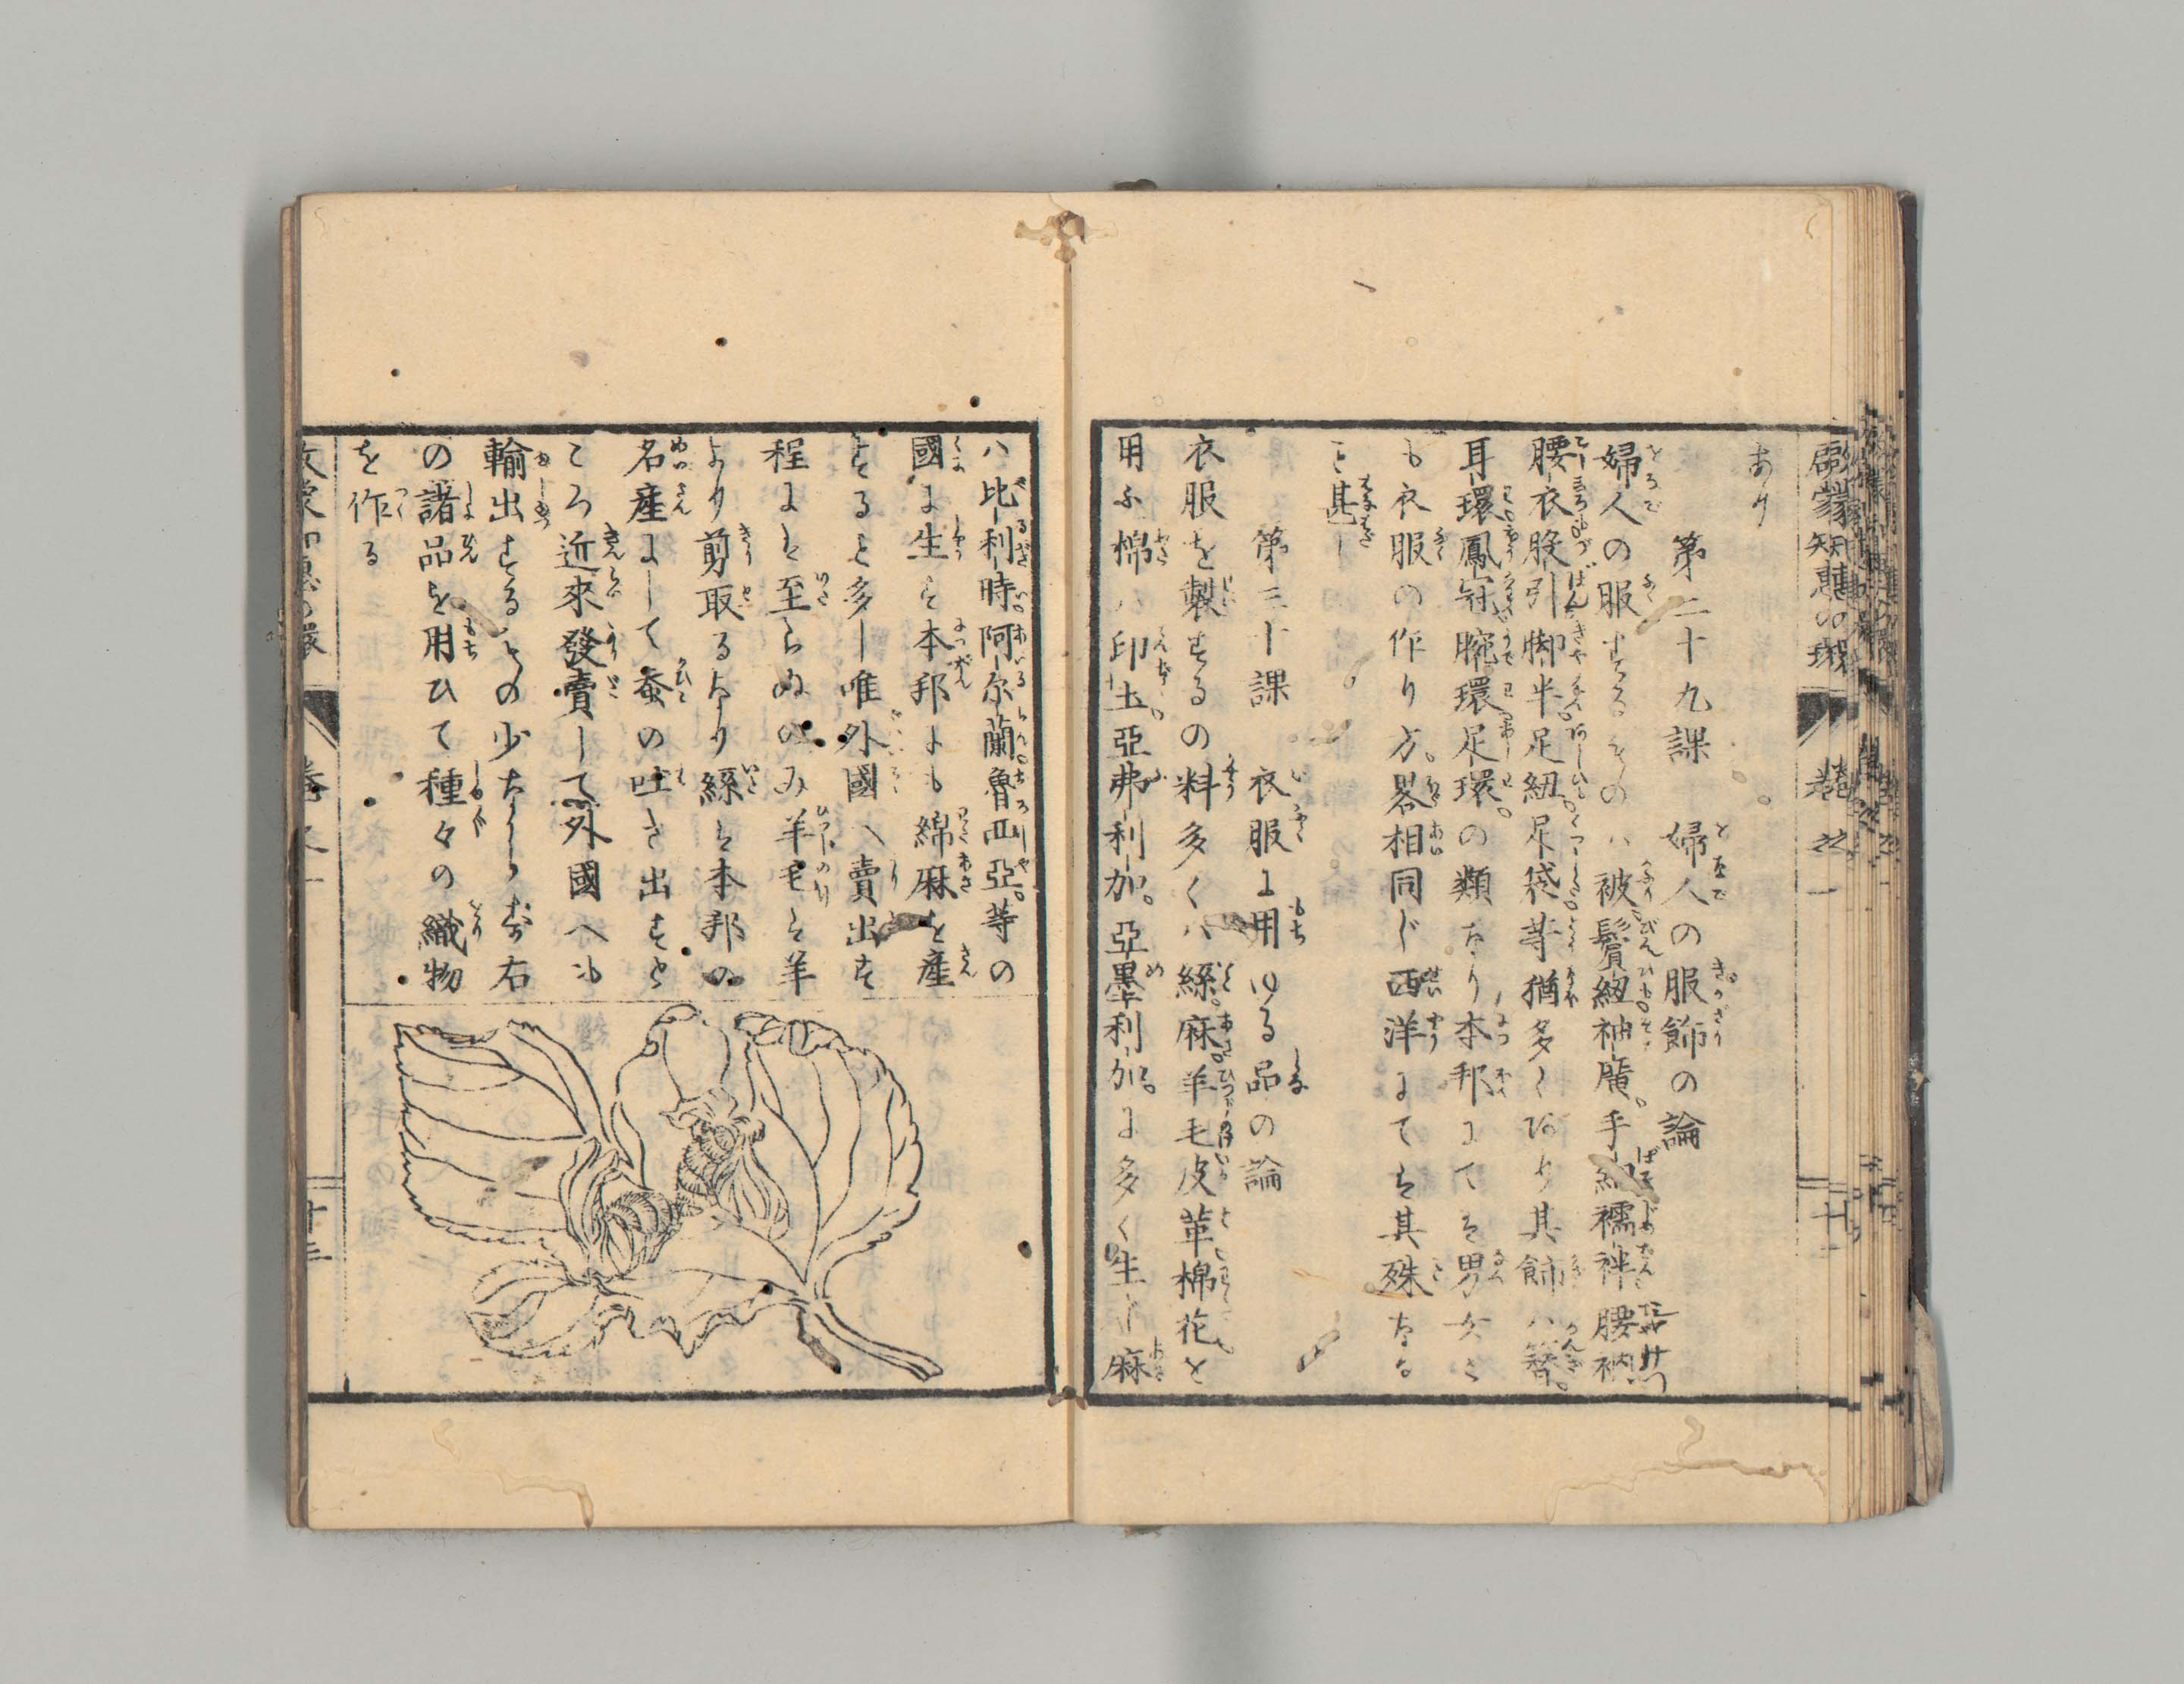 啟蒙知惠の環 卷之一 廿二
あり
第二十九課 婦人の服飾の論
婦人の服するものハ被鬢紐袖廣手紐襦袢腰衲
腰衣股引脚半足紐足袋等猶多くあり其飾ハ簪
耳環鳳冠腕環足環の類なり本邦にてを男女と
も衣服の作り方畧相同じ西洋にてを其殊なる
こと甚し
第三十課 衣服に用ゆる品の論
衣服を製するの料多くハ絲麻羊毛皮革棉花を
用ふ棉ハ印土亞弗利加亞墨利加に多く生じ麻
ハ比利時阿尔蘭魯西亞等の
國に生ず本邦にも綿麻を產
することと多し唯外國へ賣出す
程にを至らぬのみ羊毛を羊
より剪取るなり絲を本邦の
名產にして蚕の吐き出すと
ころ近來發賣して外國へも
輸出するもの少なからず右
の諸品を用ひて種々の織物
を作る
啟蒙知惠の環 卷之一 廿三